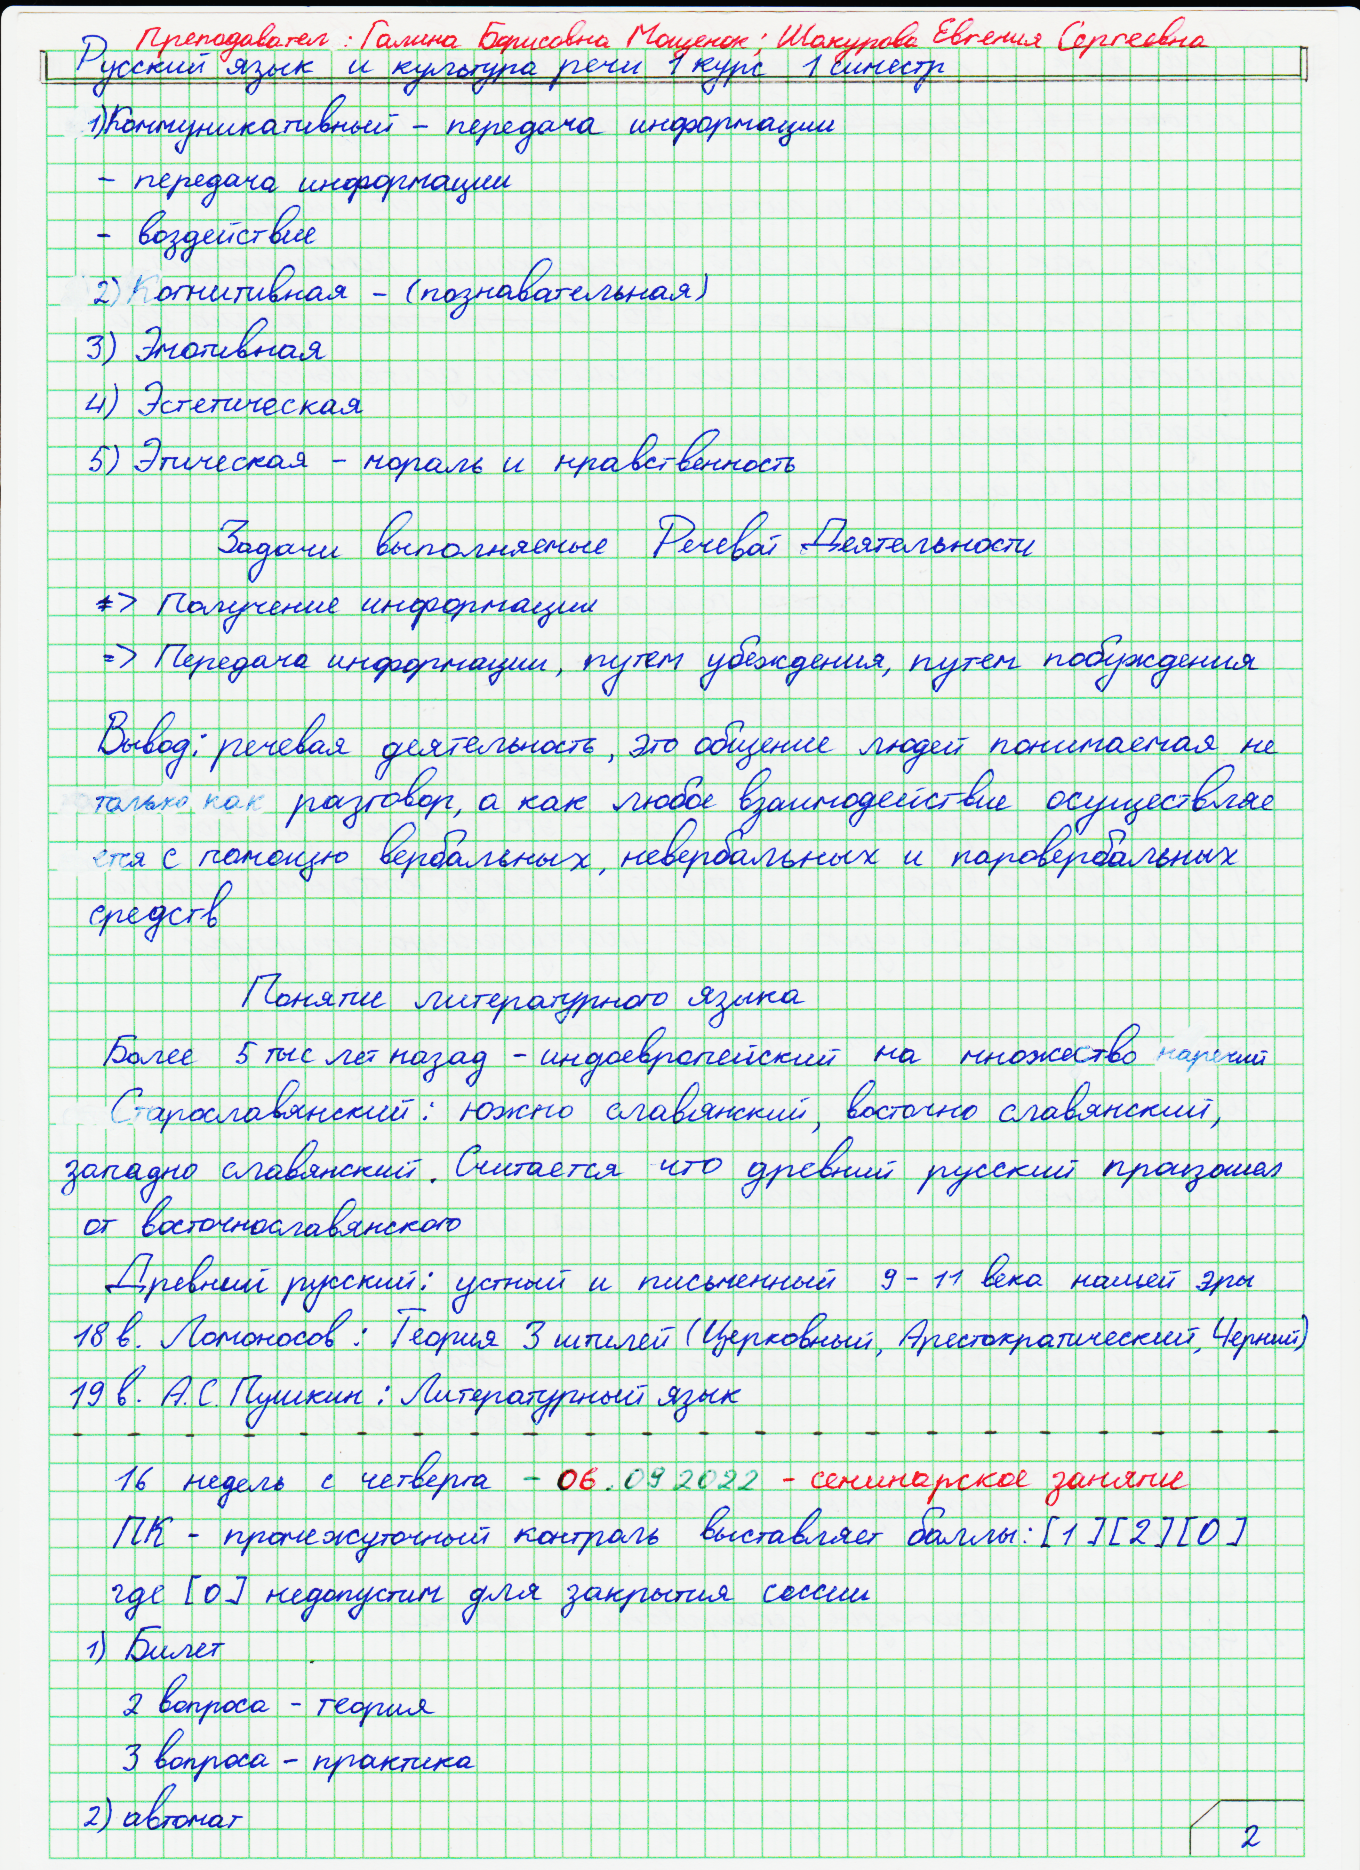 Преподавател: Галина Борисовна Мощенок; Шакурова Евгения Сергеевна
Русский язык и культура речи 1 курс 1 симестр
1) Коммуникативный - передача информации
- передача информации
- воздействие
2) Когнитивная - (познавательная)
3) Эмотивная
4) Эстетическая
5) Этическая - мораль и нравственность
Задачи выполняемые Речевой Деятельности
=> Получение информации
=> Передача информации, путем убеждения, путем побуждения
Вывод: речевая деятельность, это общение людей понимаемая не
только как разговор, а как любое взаимодействие осуществляе
ется с помощью вербальных, невербальных и паровербальных
средств
Понятие литературного языка
Более 5 тыс лет назад - индоевропейский на множество наречий
Старославянский: южно славянский, восточно славянский,
западно славянский. Считается что древний русский произошел
от восточнославянского
Древний русский: устный и письменный 9-11 века нашей эры
18 в. Ломоносов: Теория 3 штилей (Церковный, Арестократический, Черний)
19 в. А.С. Пушкин: Литературный язык
16 недель с четверга - 06.09 2022 - семинарское занятие
ПК - промежуточный контроль выставляет баллы: [1][2][0]
где [0] недопустим для закрытия сессии
1) Билет
2 вопроса - теория
3 вопроса - практика
2) автомат
2